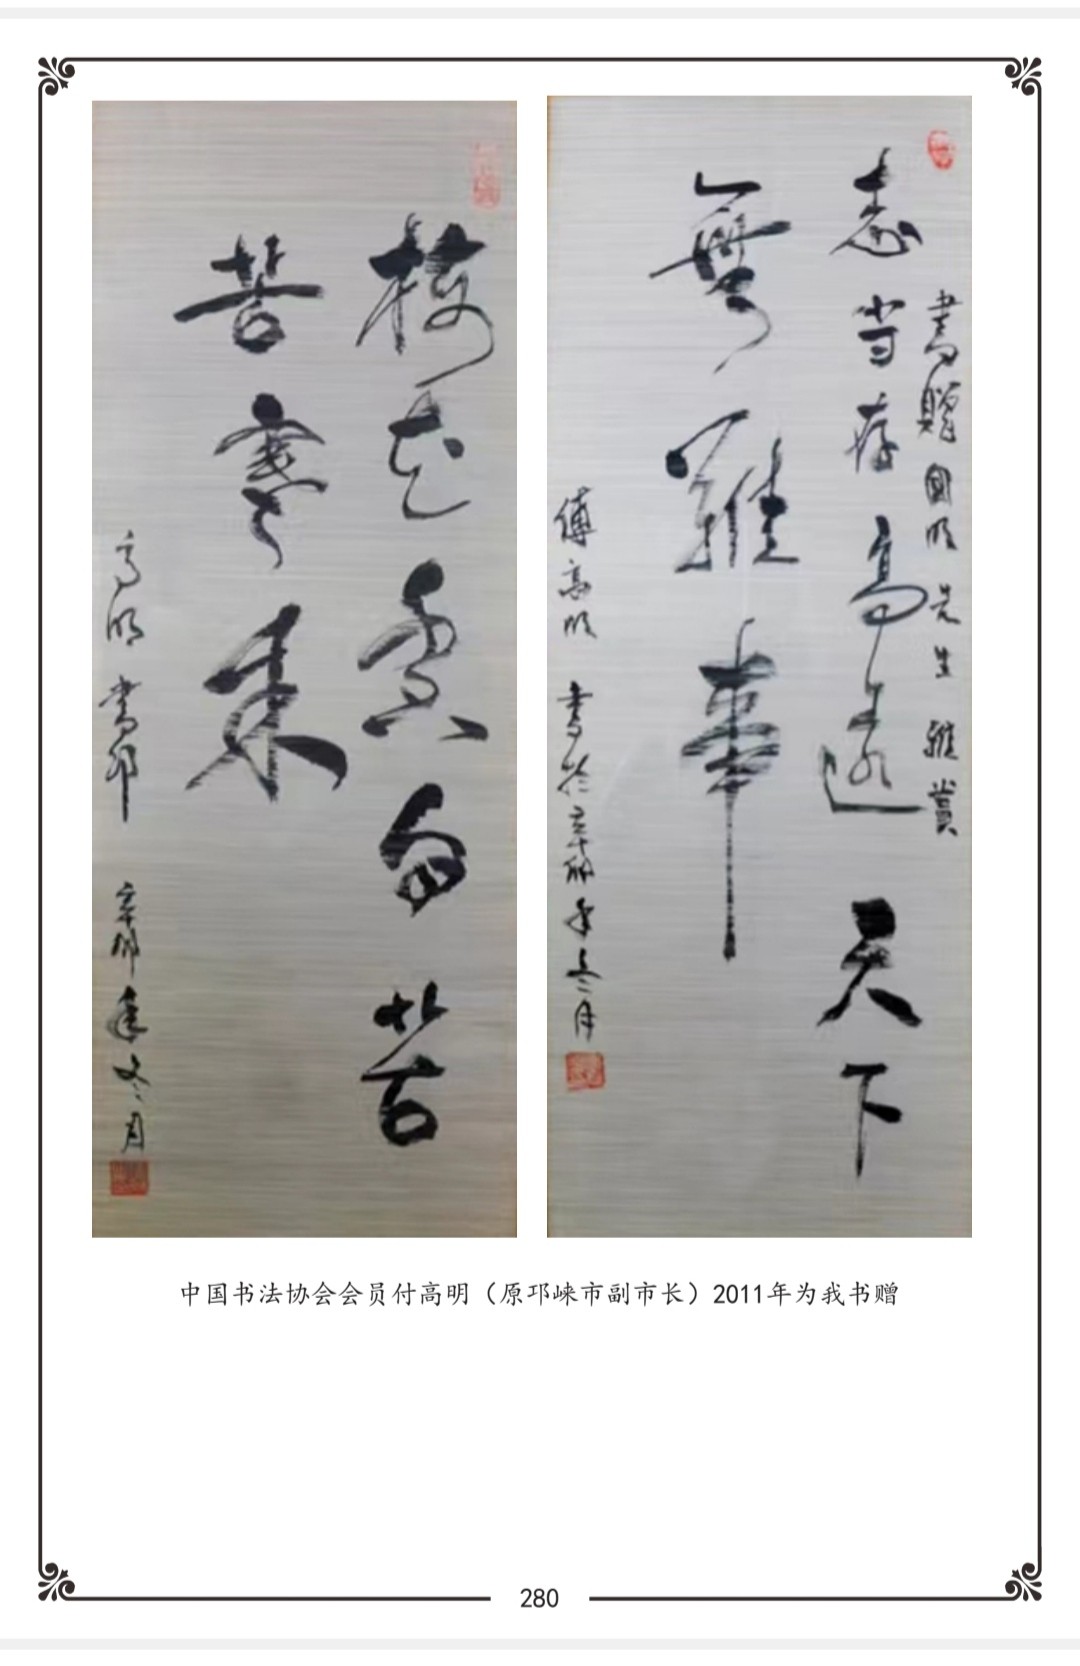 梅花香自苦
苦寒来
高明 書邛 辛卯年冬月
書贈國明先生 雅賞
志当存高遠 天下
無難事
傅高明 書於辛卯年冬月
中国书法协会会员付高明（原邛崃市副市长）2011年为我书赠
280